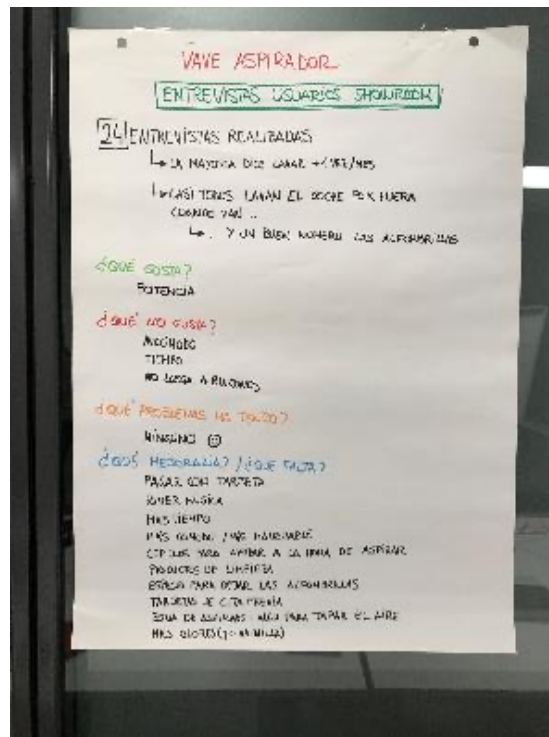 VAVE ASPIRADOR
ENTREVISTAS USUARIOS SHOWROOM
24 ENTREVISTAS REALIZADAS
LA MAYORÍA DICE LAVAR +1 VEZ/MES
CASI TODOS LAVAN EL COCHE POR FUERA
CUANDO VAN..
Y UN BUEN NÚMERO LAS ALFOMBRILLAS
¿QUÉ GUSTA?
POTENCIA
¿QUÉ NO GUSTA?
INCÓMODO
TIEMPO
NO LLEGA A RINCONES
¿QUÉ PROBLEMAS HA TENIDO?
NINGUNO ☺
¿QUÉ MEJORARÍA? / ¿QUÉ FALTA?
PAGAR CON TARJETA
PONER MÚSICA
MÁS TIEMPO
MÁS CÓMODO / MÁS MANEJABLE
CEPILLOS PARA AYUDAR A LA HORA DE ASPIRAR
PRODUCTOS DE LIMPIEZA
ESPACIO PARA DEJAR LAS ALFOMBRILLAS
TARJETAS DE CITA PREVIA
ZONA DE ASPIRADO: ALGO PARA TAPAR EL AIRE
MÁS OLORES